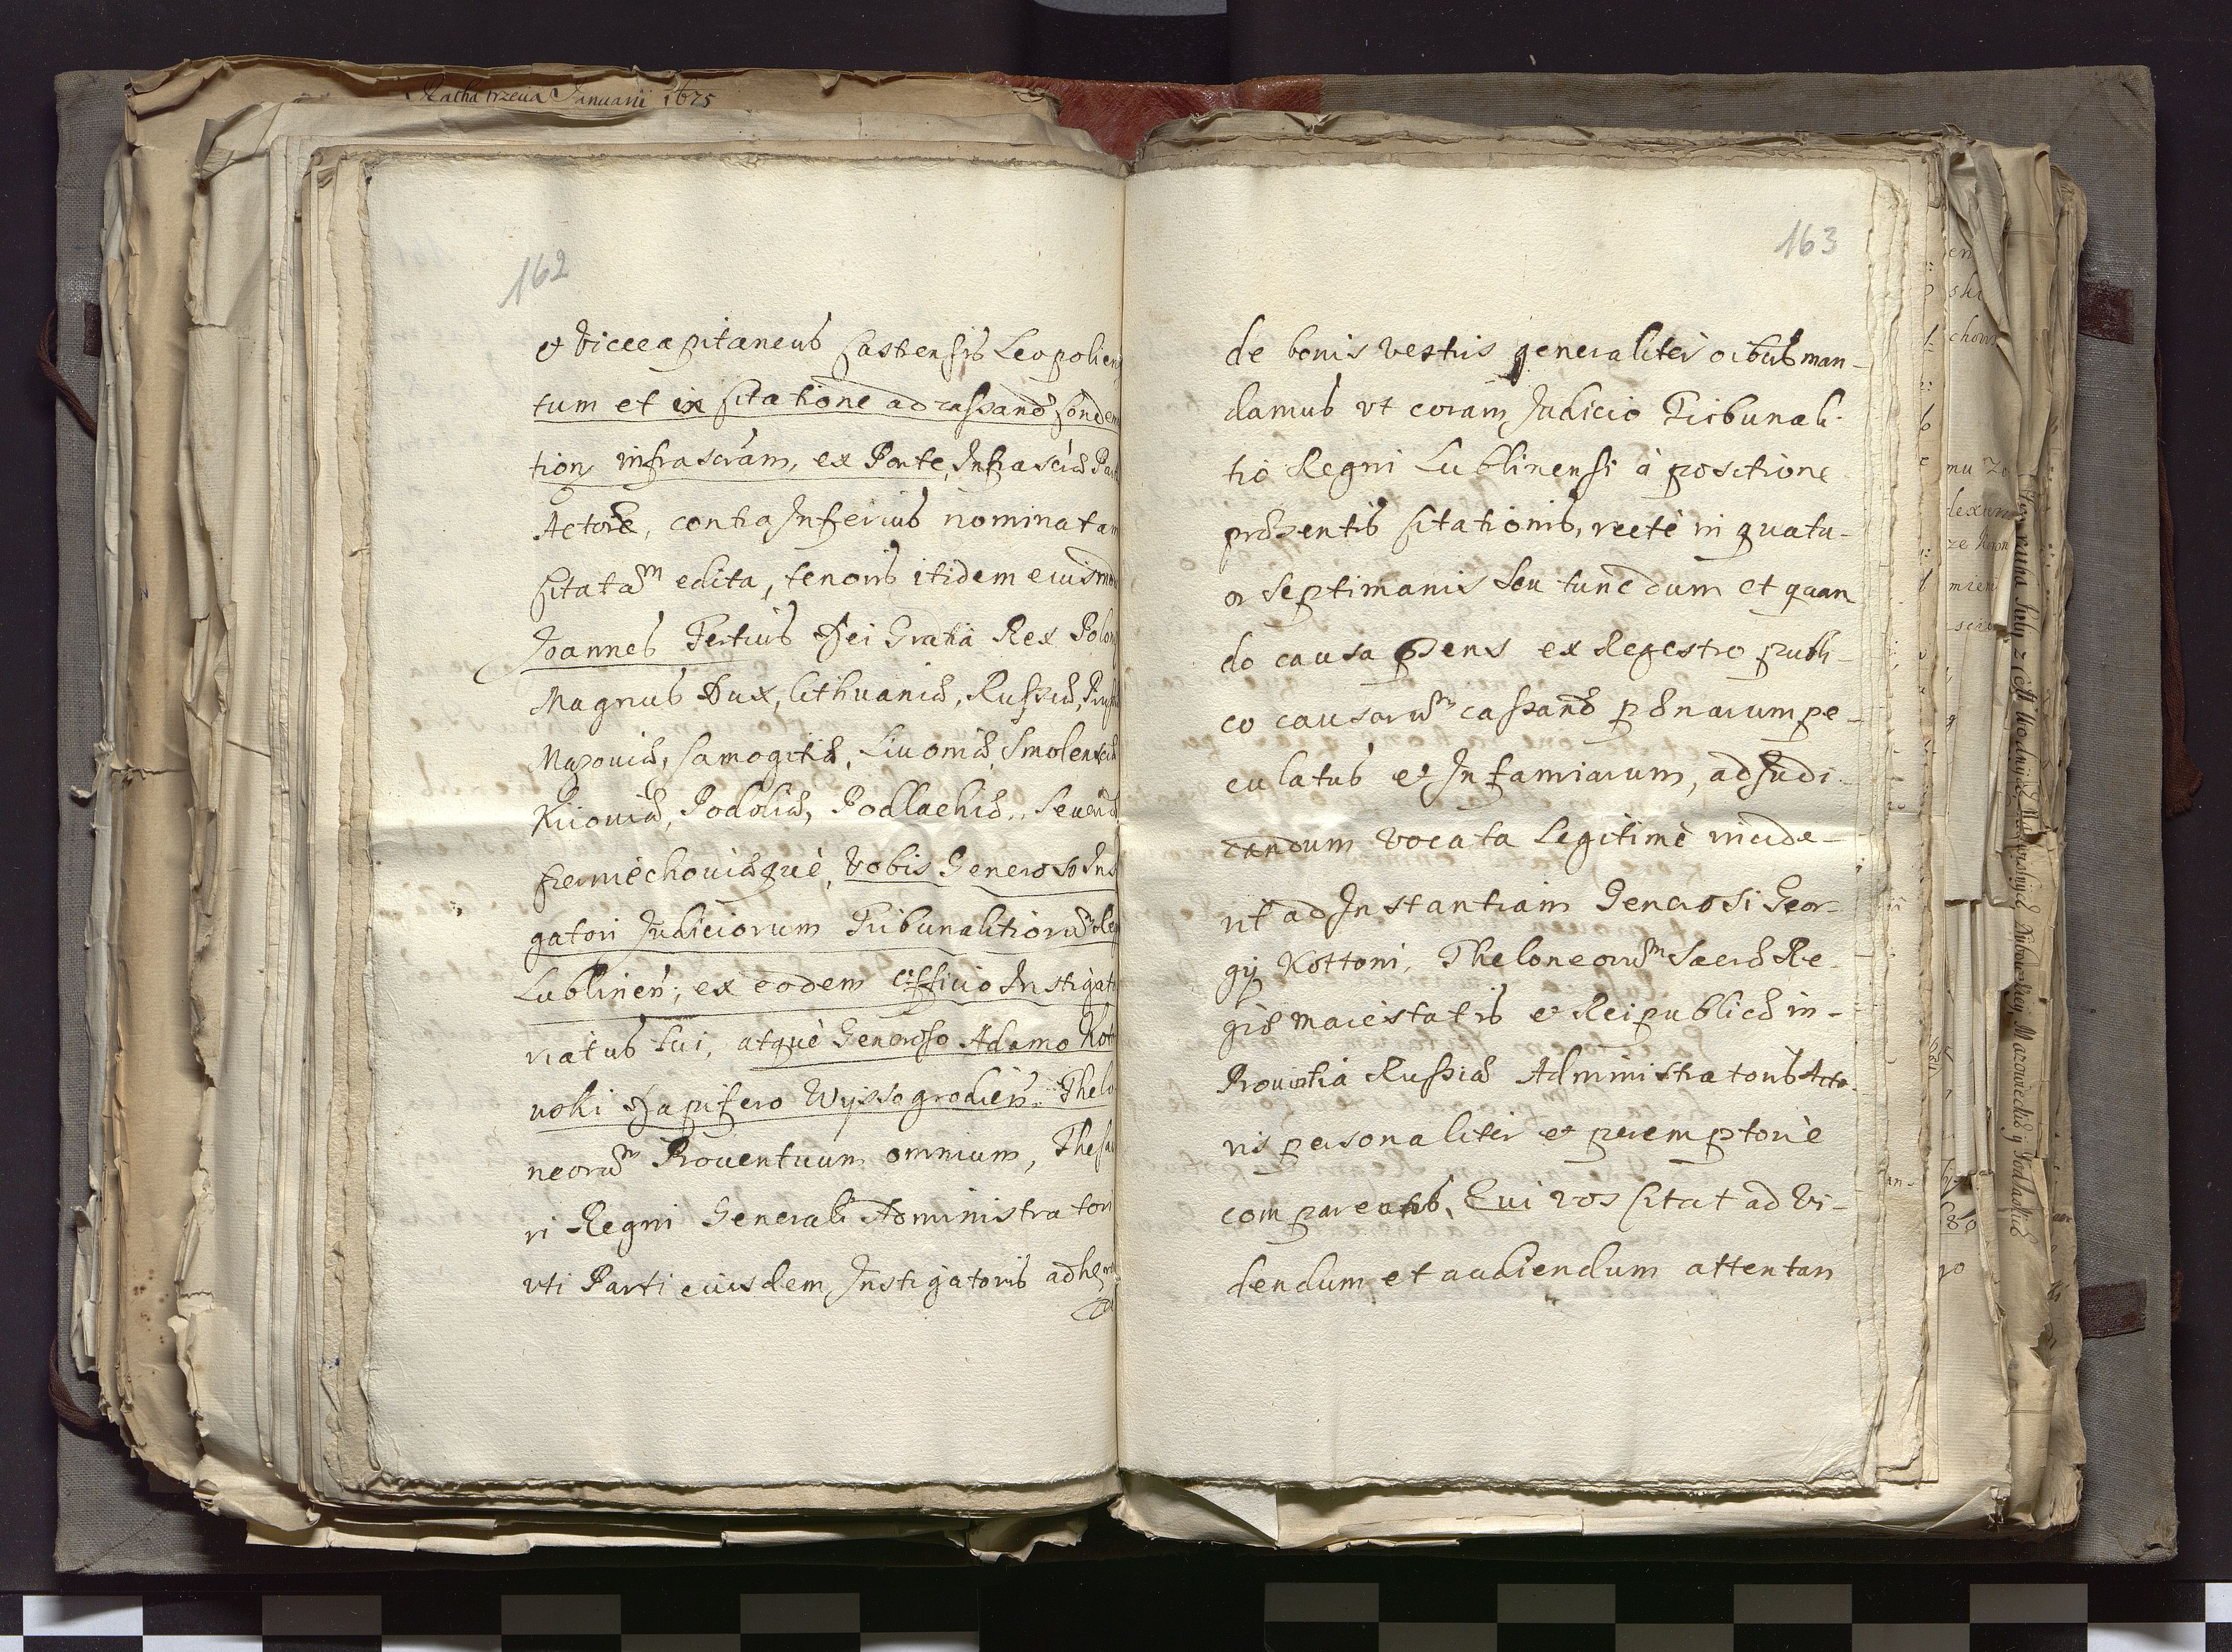 Ratha trzecia Januarii 1675
162
et Vicecapitaneus Castensis Leopolien
tum et in Citatione ad cassand Condem
tion infrascram, ex Parte Infrascrae Par
Actorae, contra Inferius nominatam
Citatam edita, tenoris itidem eiusmo
Joannes Tertius Dei Gratia Rex Polon
Magnus Dux, Lithuaniae, Russiae, Pruss
Mazoviae, Samogitiae, Livoniae, Smolensciae
Kiioviae, Podoliae, Podlachiae, Severiae
Czerniechoviaeque, Vobis Generoso Ins
gatori Judiciorum Tribunalitiorum Re
Lublinen; ex eodem Officio Instigat
riatus tui, atque Generoso Adamo Kot
uski Dapifero Wyssogrodien. Thelo
neorum Proventuum omnium, Thesau
ri Regni Generali Administratori
uti Parti eiusdem Instigatoris adhe
163
de bonis vestris generaliter oibus man-
damus ut coram Judicio Tribunali-
tio Regni Lublinensi à positione
praesentis Citationis, rectè in quatu-
or septimanis seu tunc dum et quan
do causa psens ex Regestro publi-
co causarum cassand paenarum pe-
culatus et Infamiarum, adjudi-
candum vocata legitimè incide-
rit ad Instantiam Generosi Geor-
gij Kottoni, Theloneorum Sacrae Re-
giae Maiestatis et Reipublicae in
Provintia Russiae Administratoris Acto-
ris personaliter et peremptoriè
compareatis, Qui vos Citat ad Vi-
dendum et audiendum attentari